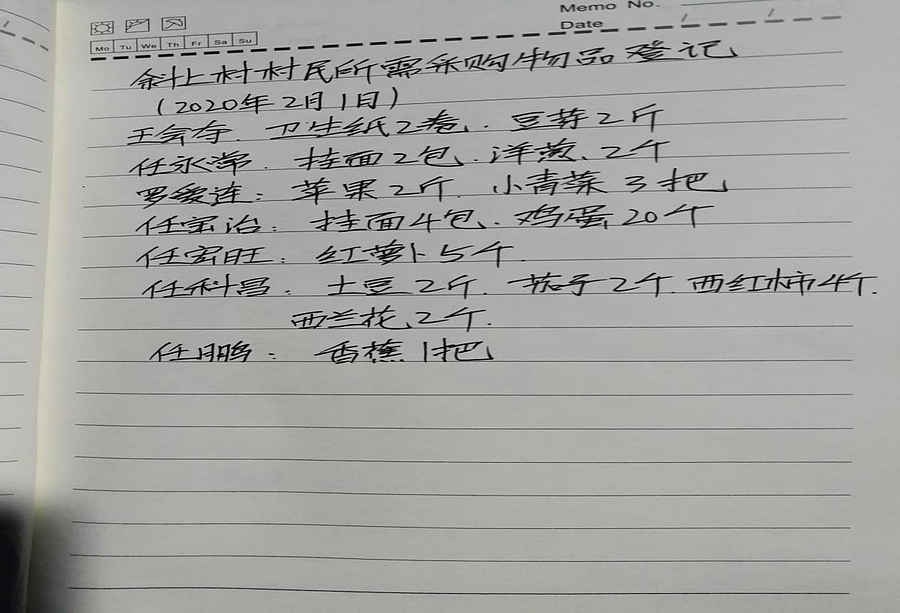 Memo No.
Date
Mo Tu We Th Fr Sa Su
斜上村村民所需采购物品登记
(2020年2月1日)
王会存 卫生纸2卷、豆芽2斤
任永常. 挂面2包、洋葱、2个
罗爱连: 苹果2斤. 小青菜3把
任宝治: 挂面4包、鸡蛋20个
任宏旺: 红萝卜5个.
任科昌. 土豆2斤. 茄子2个. 西红柿4个.
西兰花、2个.
任鹏: 香蕉1把